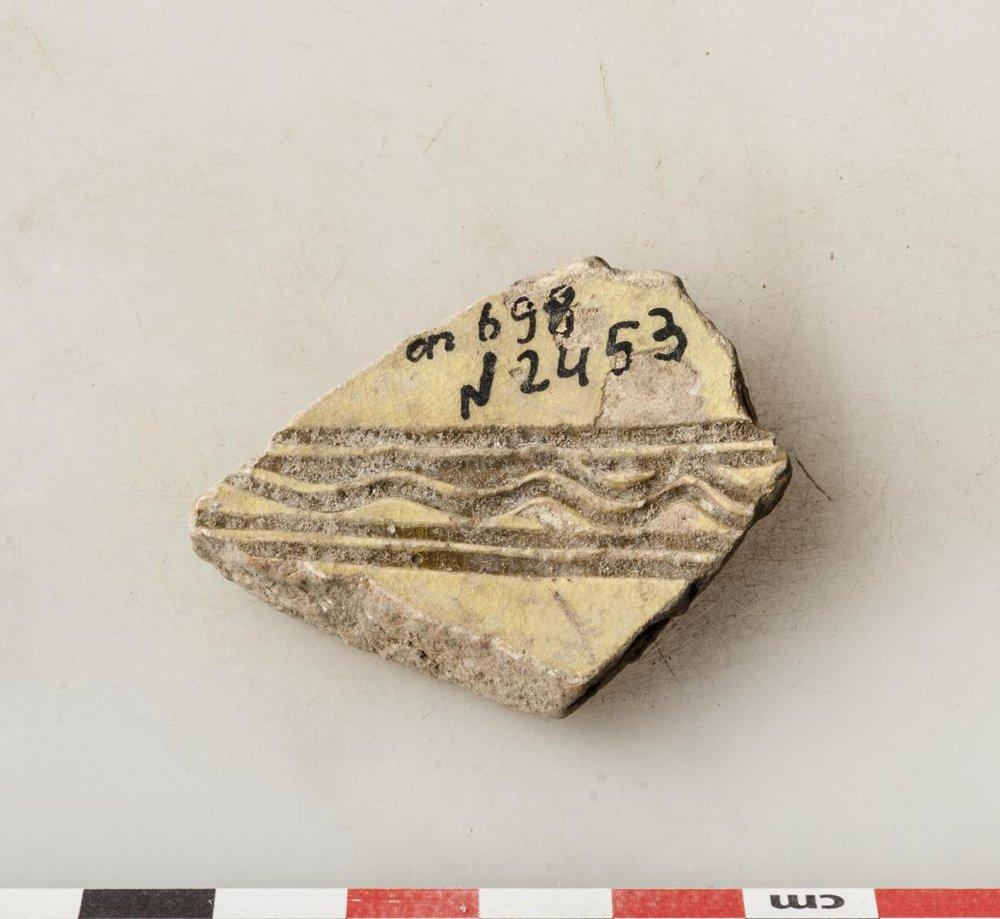 оп 698
N 2453
cm